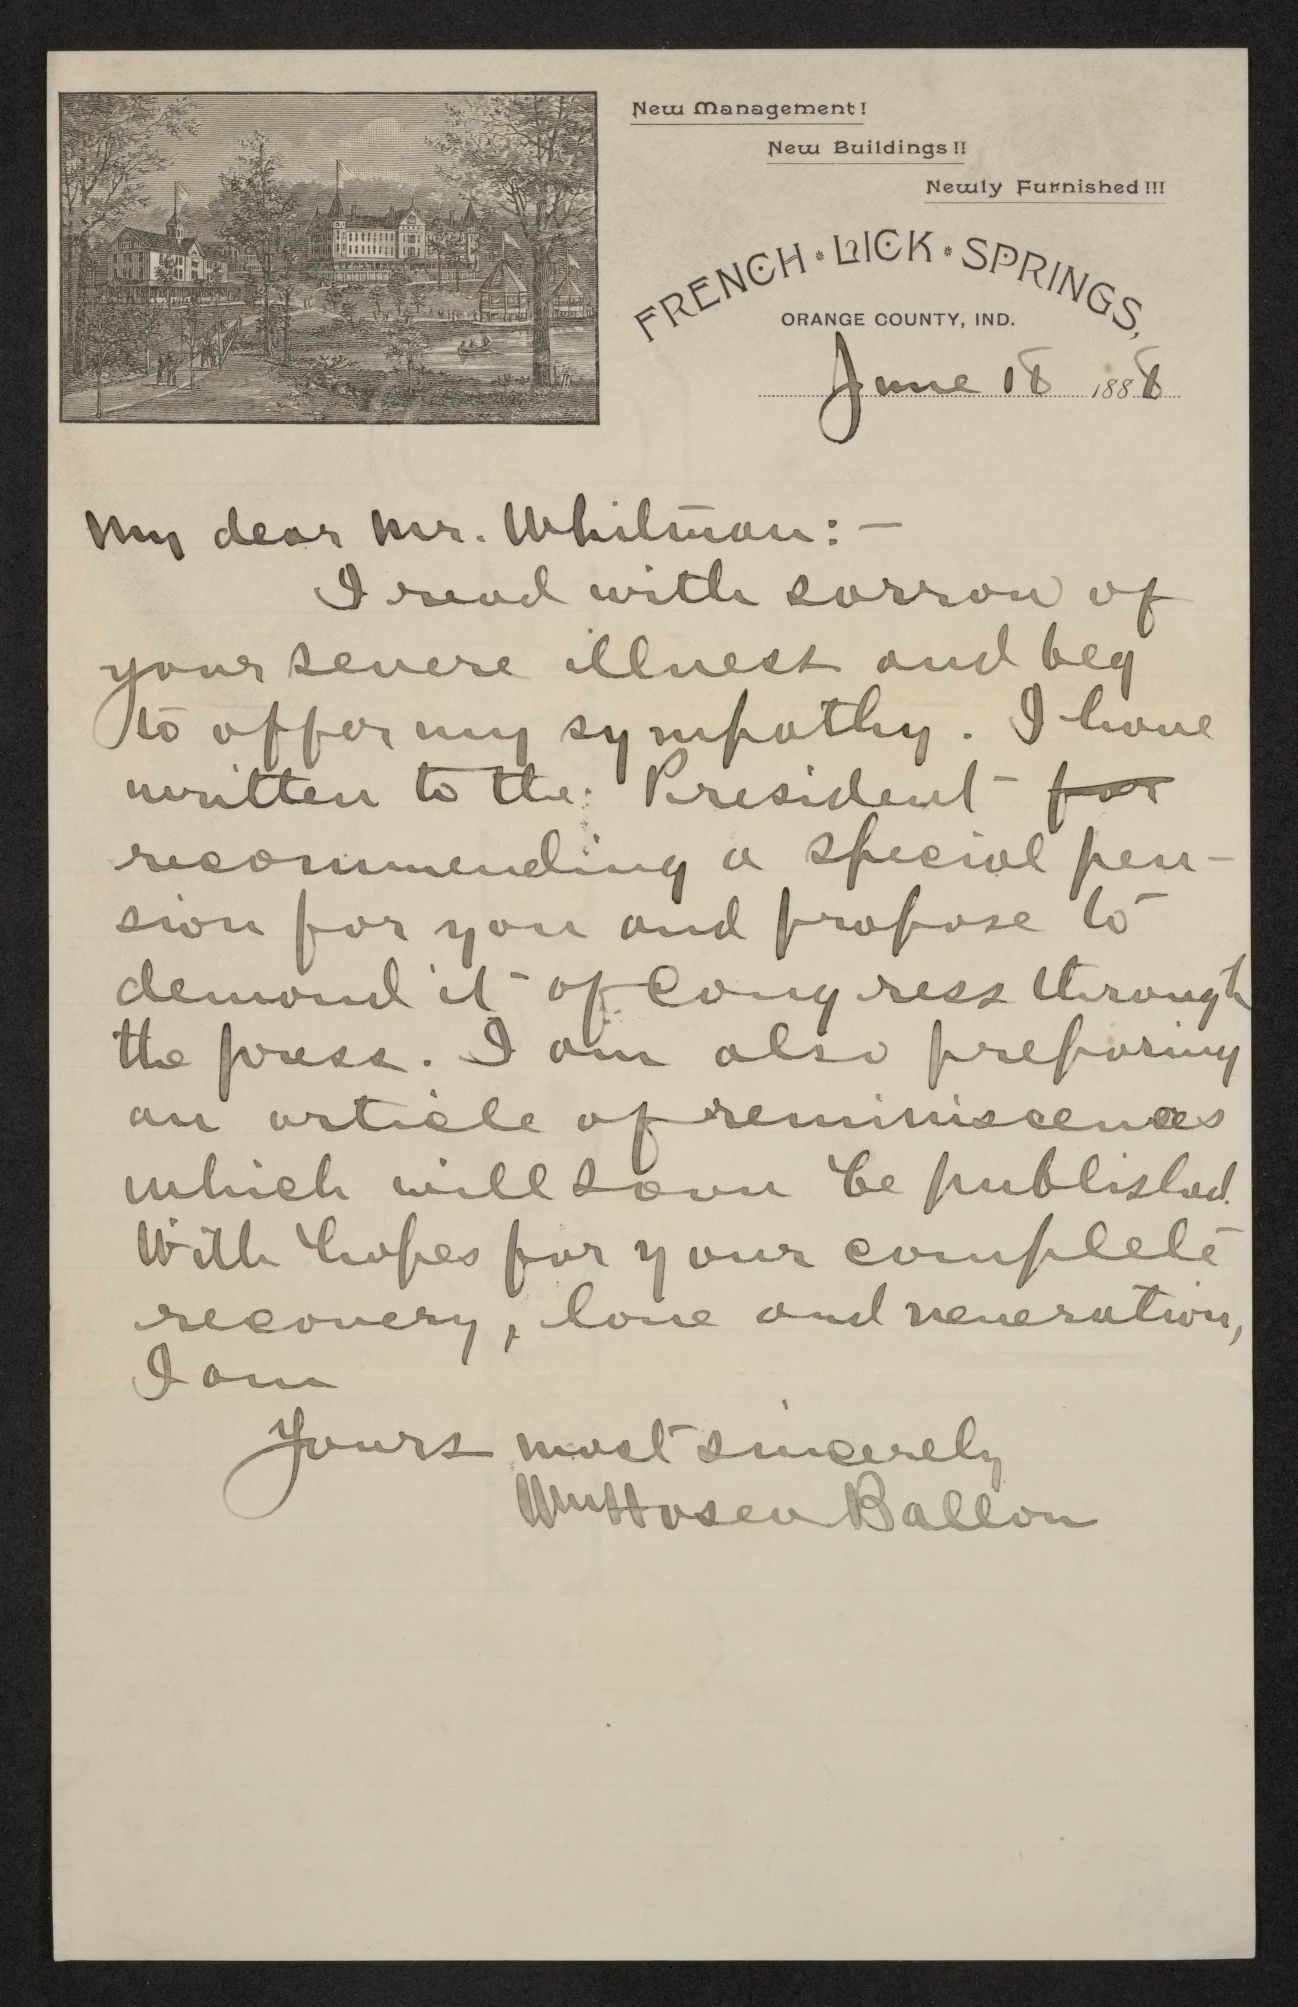 New Management!
New Buildings!!
Newly Furnished!!!
FRENCH * LICK * SPRINGS,
ORANGE COUNTY, IND.
June 18 1888
My dear Mr. Whitman:—
I read with sorrow of
your severe illness and beg
to offer my sympathy. I have
written to the President for
recommending a special pen-
sion for you and propose to
demand it of Congress through
the press. I am also preparing
an article of reminiscences
which will soon be published.
With hopes for your complete
recovery, love and veneration,
I am
Yours most sincerely
Wm Hosea Ballou